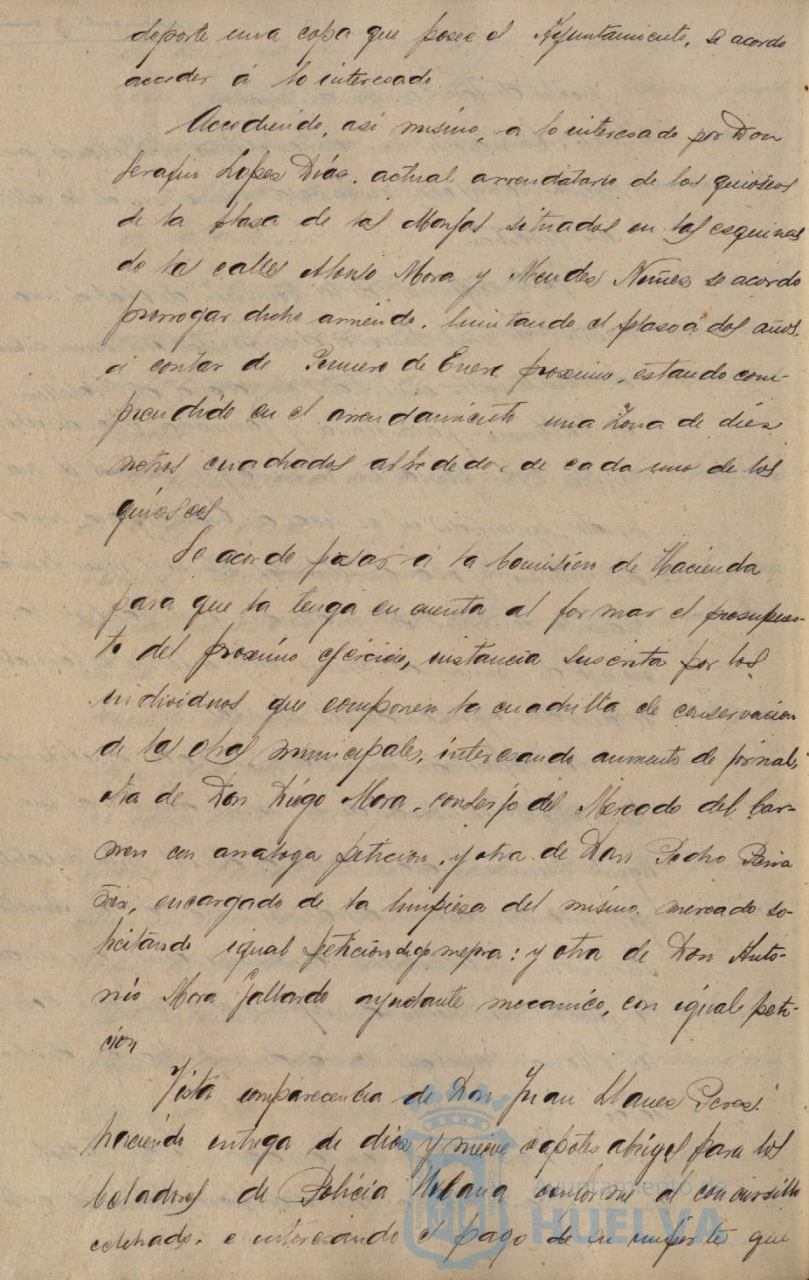 deporte una copa que posee el Ayuntamiento, se acordo
acceder á lo interesado
Accediendo, asi mismo, a lo interesado por Don
Serafin Lopez Diás, actual arrendatario de los quioscos
de la plasa de las Monjas situados en las esquinas
de las calles Alonso Mora y Mendes Nuñez se acordo
prorrogar dicho arriendo, limitando el plaso a dos años,
a contar de Primero de Enero proximo, estando com-
prendido en el arrendamiento una zona de dies
metros cuadrados alrededor de cada uno de los
quioscos
Se acordo pasar á la Comision de Hacienda
para que la tenga en cuenta al formar el presupues-
to del proximo ejercicio, instancia suscrita por los
individuos que componen la cuadrilla de conservacion
de las obras municipales, interesando aumento de jornal,
otra de Don Diego Mora, conserje del Mercado del Car-
men con analoga peticion, y otra de Don Pedro
encargado de la limpiesa del mismo mercado so-
licitando igual petición de mejora: y otra de Don Anto-
nio Mora Gallardo ayudante mecanico, con igual peti-
cion
Vista comparecencia de Don Juan Llanes Peres
haciendo entrega de dies y nueve capotes abrigos para los
celadores de Policia Urbana conforme al concursillo
celebrado, e interesando el pago de su importe que
Ayuntamiento de
HUELVA